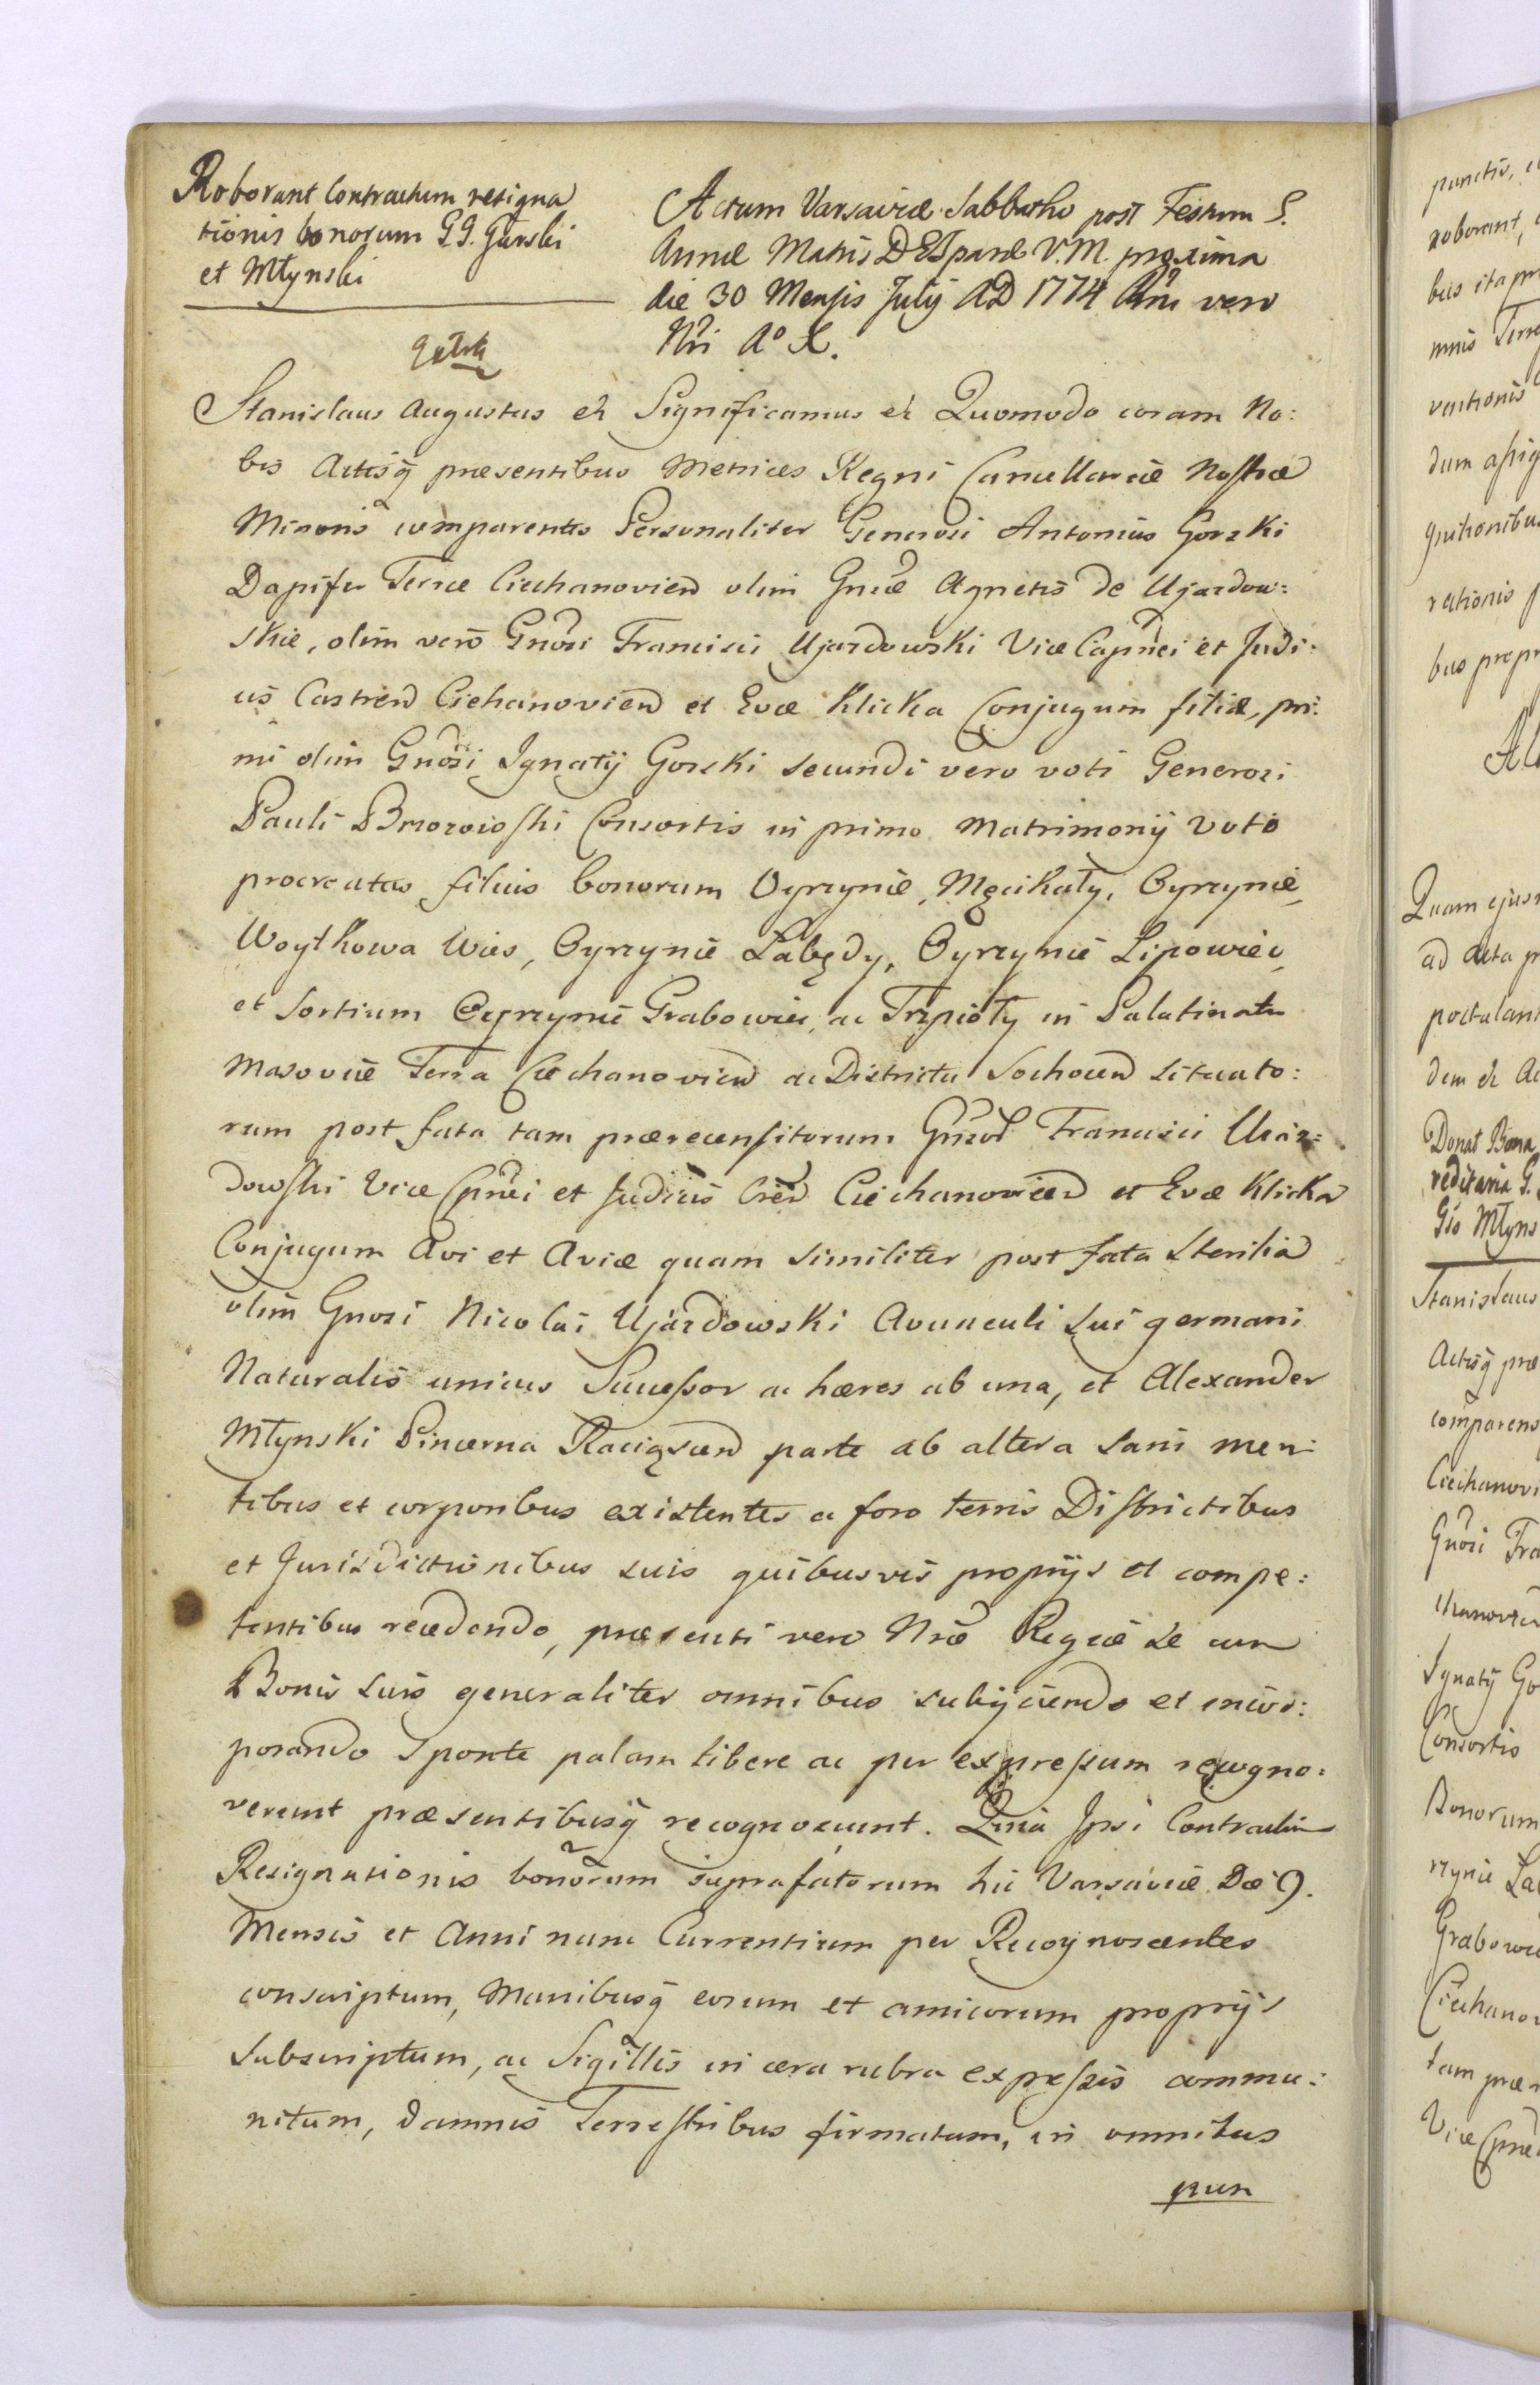 Roborant Contractum resigna
tionis bonorum G.G. Gurski
et Młynski
Actum Varsaviæ Sabbatho post Festum S.
Annæ Matris DEIparæ V.M. proxima
die 30 Mensis July AD 1774 Rni vero
Nri Aº X.
Stanislaus Augustus etc Significamus etc Quomodo coram No:
bis Actisq præsentibus Metrices Regni Cancellariæ Nostræ
Minoris comparentes Personaliter Generosi Antonius Gorzki
Dapifer Terræ Ciechanovien olim Gnræ Agnetis de Ujazdow:
skie, olim vero Gnosi Francisci Ujazdowski Vice Capnei et Judi:
cis Castren Ciehanovien et Evæ Klicka Conjugum filiæ, pri:
mi olim Gnosi Ignatij Gorski secundi vero voti Generosi
Pauli Brzozowski Consortis in primo Matrimonij voto
procreatus filius bonorum Oyrzynie, Męcikały, Oyrzynie,
Woytkowa Wies, Oyrzynie Łabędy, Oyrzynie Lipowiec,
et Sortium Oyrzynie Grabowiec, ac Trzpioły in Palatinatu
Masoviæ Terra Ciechanovien ac Districtu Sochocen situato:
rum post fata tam prærecensitorum Gnrod Francisci Uiaz=
dowski Vice Cpnei et Judicis Cren Ciechanovien et Evæ Klicka
Conjugum Avi et Aviæ quam similiter post fata sterilia
olim Gnosi Nicolai Ujazdowski Avunculi sui germani
Naturalis unicus Successor ac hæres ab una, et Alexander
Młynski Pincerna Raciązcen parte ab altera sani men:
tibus et corporibus existentes a foro terris Districtibus
et Jurisdictionibus suis quibusvis proprijs et compe:
tentibus recedendo, præsenti vero Nræ Regiæ se cum
Bonis suis generaliter omnibus subijciendo et incor:
porando Sponte palam libere ac per expressum recogno:
verunt præsentibusq recognoscunt. Quia Ipsi Contractum
Resignationis bonorum suprafatorum hic Varsaviæ Die 9.
Mensis et Anni nunc Currentium per Recognoscentes
conscriptum, Manibusq eorum et amicorum proprijs
Subscriptum, ac Sigillis in cera rubra expressis commu:
nitum, damnis Terrestribus firmatum, in omnibus
pun
punctis,
roborant,
bus ita
minis Terre
vationis
dum assig
quitionibus
rationis
bus propr
Quam ejus
ad Acta pr
postulant
dem etc Ac
Donat Bona
reditaria G.
Gso Młyns
Stanislaus
Actisq præ
comparens
Ciechanovi
Gnosi Fra
Ignatij Go
Consortis
Bonorum
rzynie Ła
Grabowie
Ciechanov
tam prær
Vice Cpne